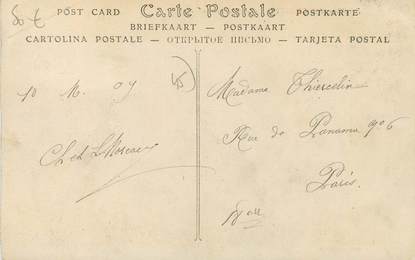 POST CARD Carte Postale POSTKARTE
BRIEFKAART — POSTKAART
CARTOLINA POSTALE — ОТКРЫТОЕ ПИСЬМО — TARJETA POSTAL
10 M. 07
Madame Thiercelin
Rue de Panama 906
Paris.
18